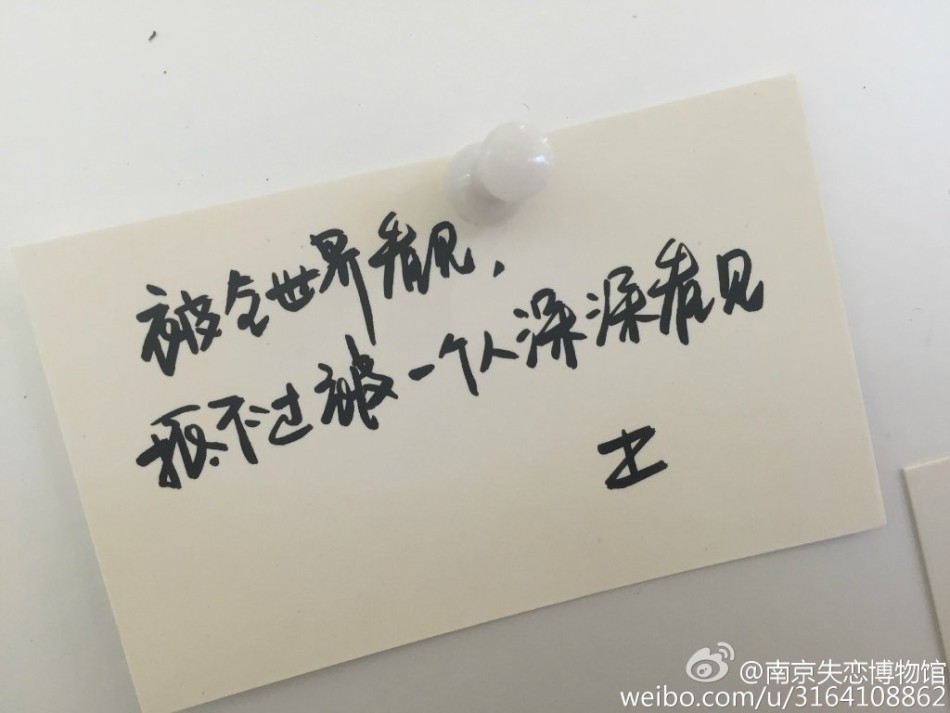 被全世界看见，
抵不过被一个人深深看见
@南京失恋博物馆
weibo.com/u/3164108862